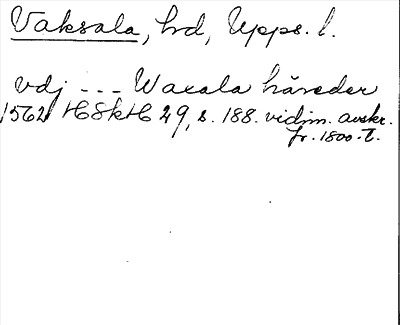 Vaksala, hd, Upps. l.
vdj --- Waxala häreder
1562 HSkH 29, s. 188. vidim. avskr.
fr. 1800-t.